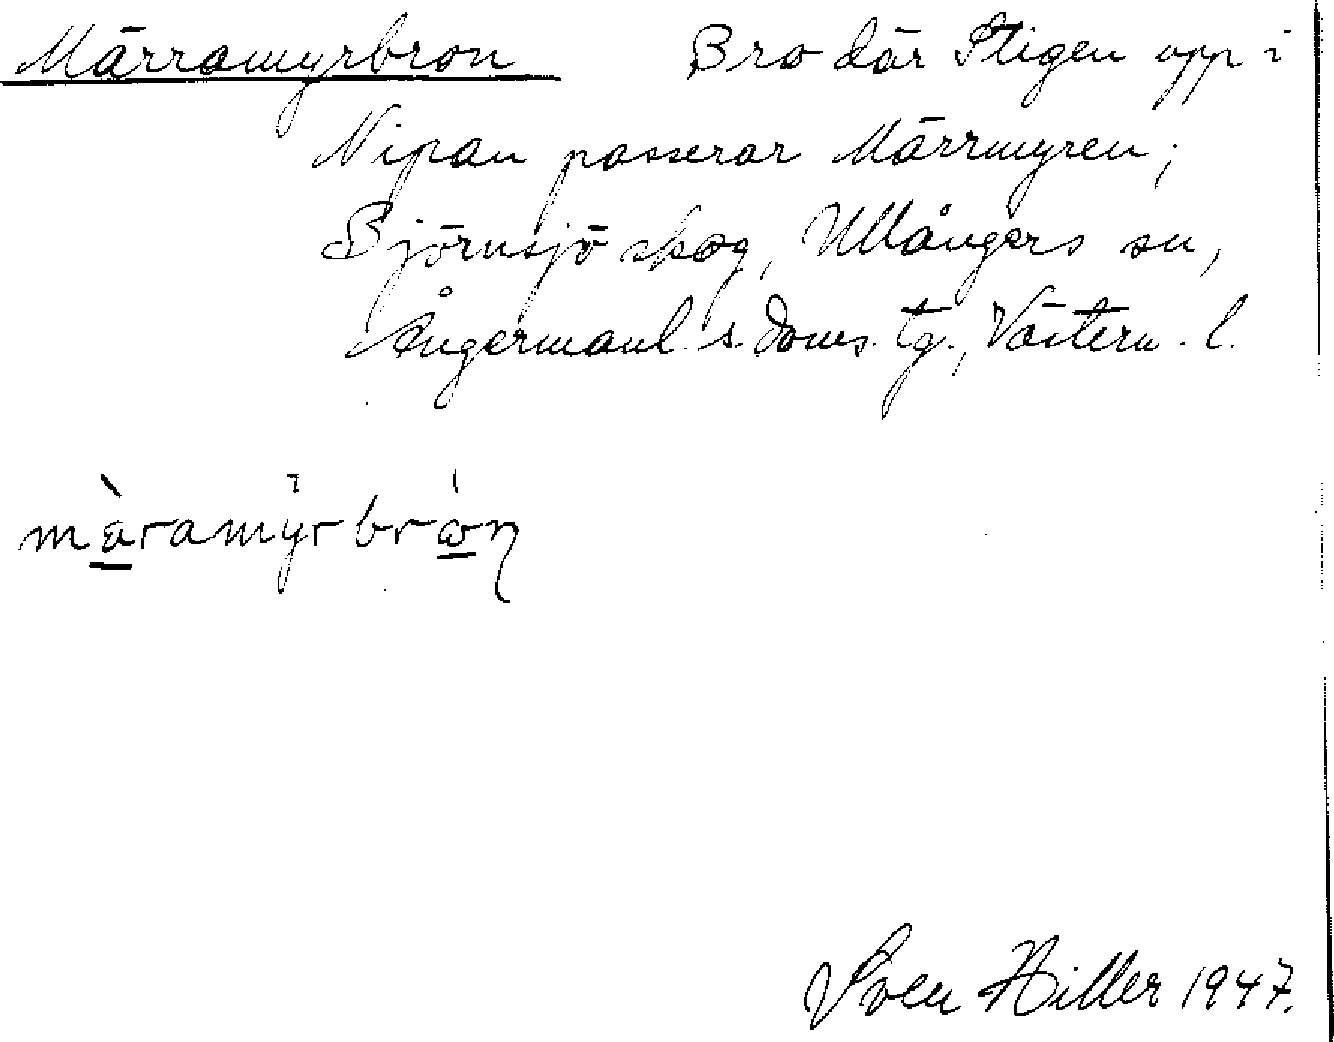 Märramyrbron Bro där Stigen upp i
Nipan passerar Märrmyren;
Björnsjö skog, Ullångers sn,
Ångermanl. s. doms. tg., Västern. l.
màramȳrbrón
Sven Hiller 1947.